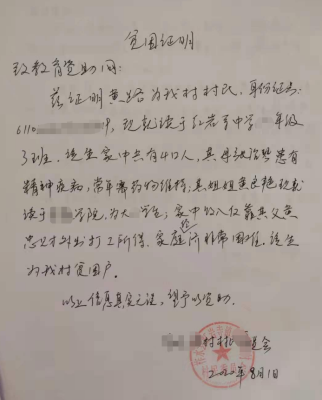 贫困证明
致教育资助网:
兹证明黄 为我村村民,身份证号:
6110 9,现就读于红岩寺中学 年级
3班,该生家中共有4口人,其母 患有
精神疾病,常年靠药物维持,其姐姐黄 艳现就
读于 学院,为大 学生,家中收入仅靠其父黄
忠 外出打工所得,家庭经济非常困难,该生
为我村贫困户。
以上信息真实无误,望予以资助。
村村 委会
2020年8月1日